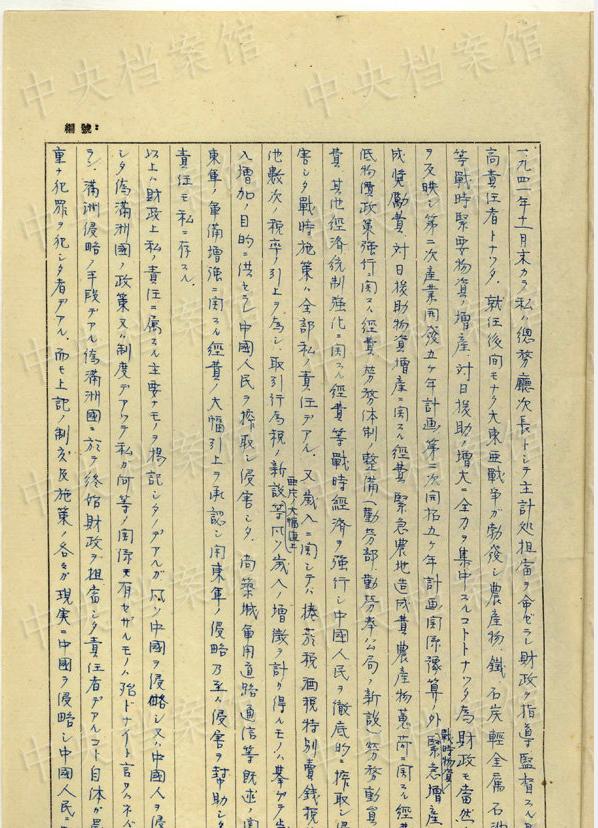 中央档案馆
編號:
一九四一年十一月末カラ私ハ總務廳次長トシテ主計処担當ヲ命ゼラレ財政ノ指導監督スル
高責任者トナツタ.就任後間モナク大東亜戦争ガ勃発シ農産物.鐵.石炭.輕金属.石油
等戦時緊要物資ノ増産.対日援助ノ増大ニ全力ヲ集中スルコトトナツタ為財政モ當然
ヲ反映シ第二次産業開発五ケ年計画第二次開拓五ケ年計画関係豫算ノ外緊急増産
戦時物資
成奨勵費.対日援助物資増産ニ関スル経費.緊急農地造成費農産物蒐荷ニ関スル経
低物價政策強行ニ関スル経費.労務体制ノ整備(勤労部.勤労奉公局ノ新設)労務動員
費其他経済統制強化ニ関スル経費等戦時経済ヲ強行シ中國人民ヲ徹底的ニ搾取シ侵
害シタ戦時施策ハ全部私ノ責任デアル.又歳入ニ関シテハ捲菸税酒税特別賣銭税
他数次ノ税率ノ引上ヲ為シ.取引行為税ノ新設等凡ソ歳入ノ増徴ヲ計リ得ルモノハ挙ゲテ
阿片ノ大幅値上
入増加ノ目的ニ供セラレ中國人民ヲ搾取シ侵害シタ.尚築城軍用道路通信等既述ノ関
東軍ノ軍備増強ニ関スル経費ノ大幅引上ヲ承認シ関東軍ノ侵略乃至ハ侵害ヲ幇助シタ
責任モ私ニ存スル.
以上ハ財政上私ノ責任ニ属スル主要ナモノヲ掲記シタノデアルガ凡ソ中國ヲ侵略シ又ハ中國人ヲ侵
シタ偽滿洲國ノ政策又ハ制度デアツテ私ガ何等ノ関係モ有セザルモノハ殆ドナイト言ハネバ
ラン.滿洲侵略ノ手段デアル偽滿洲國ニ於テ終始財政ヲ担當シタ責任者デアルコト自体ガ
重ナ犯罪ヲ犯シタ者デアル.而モ上記ノ制度及施策ノ各々ガ現実ニ中國ヲ侵略シ中國人民ニ